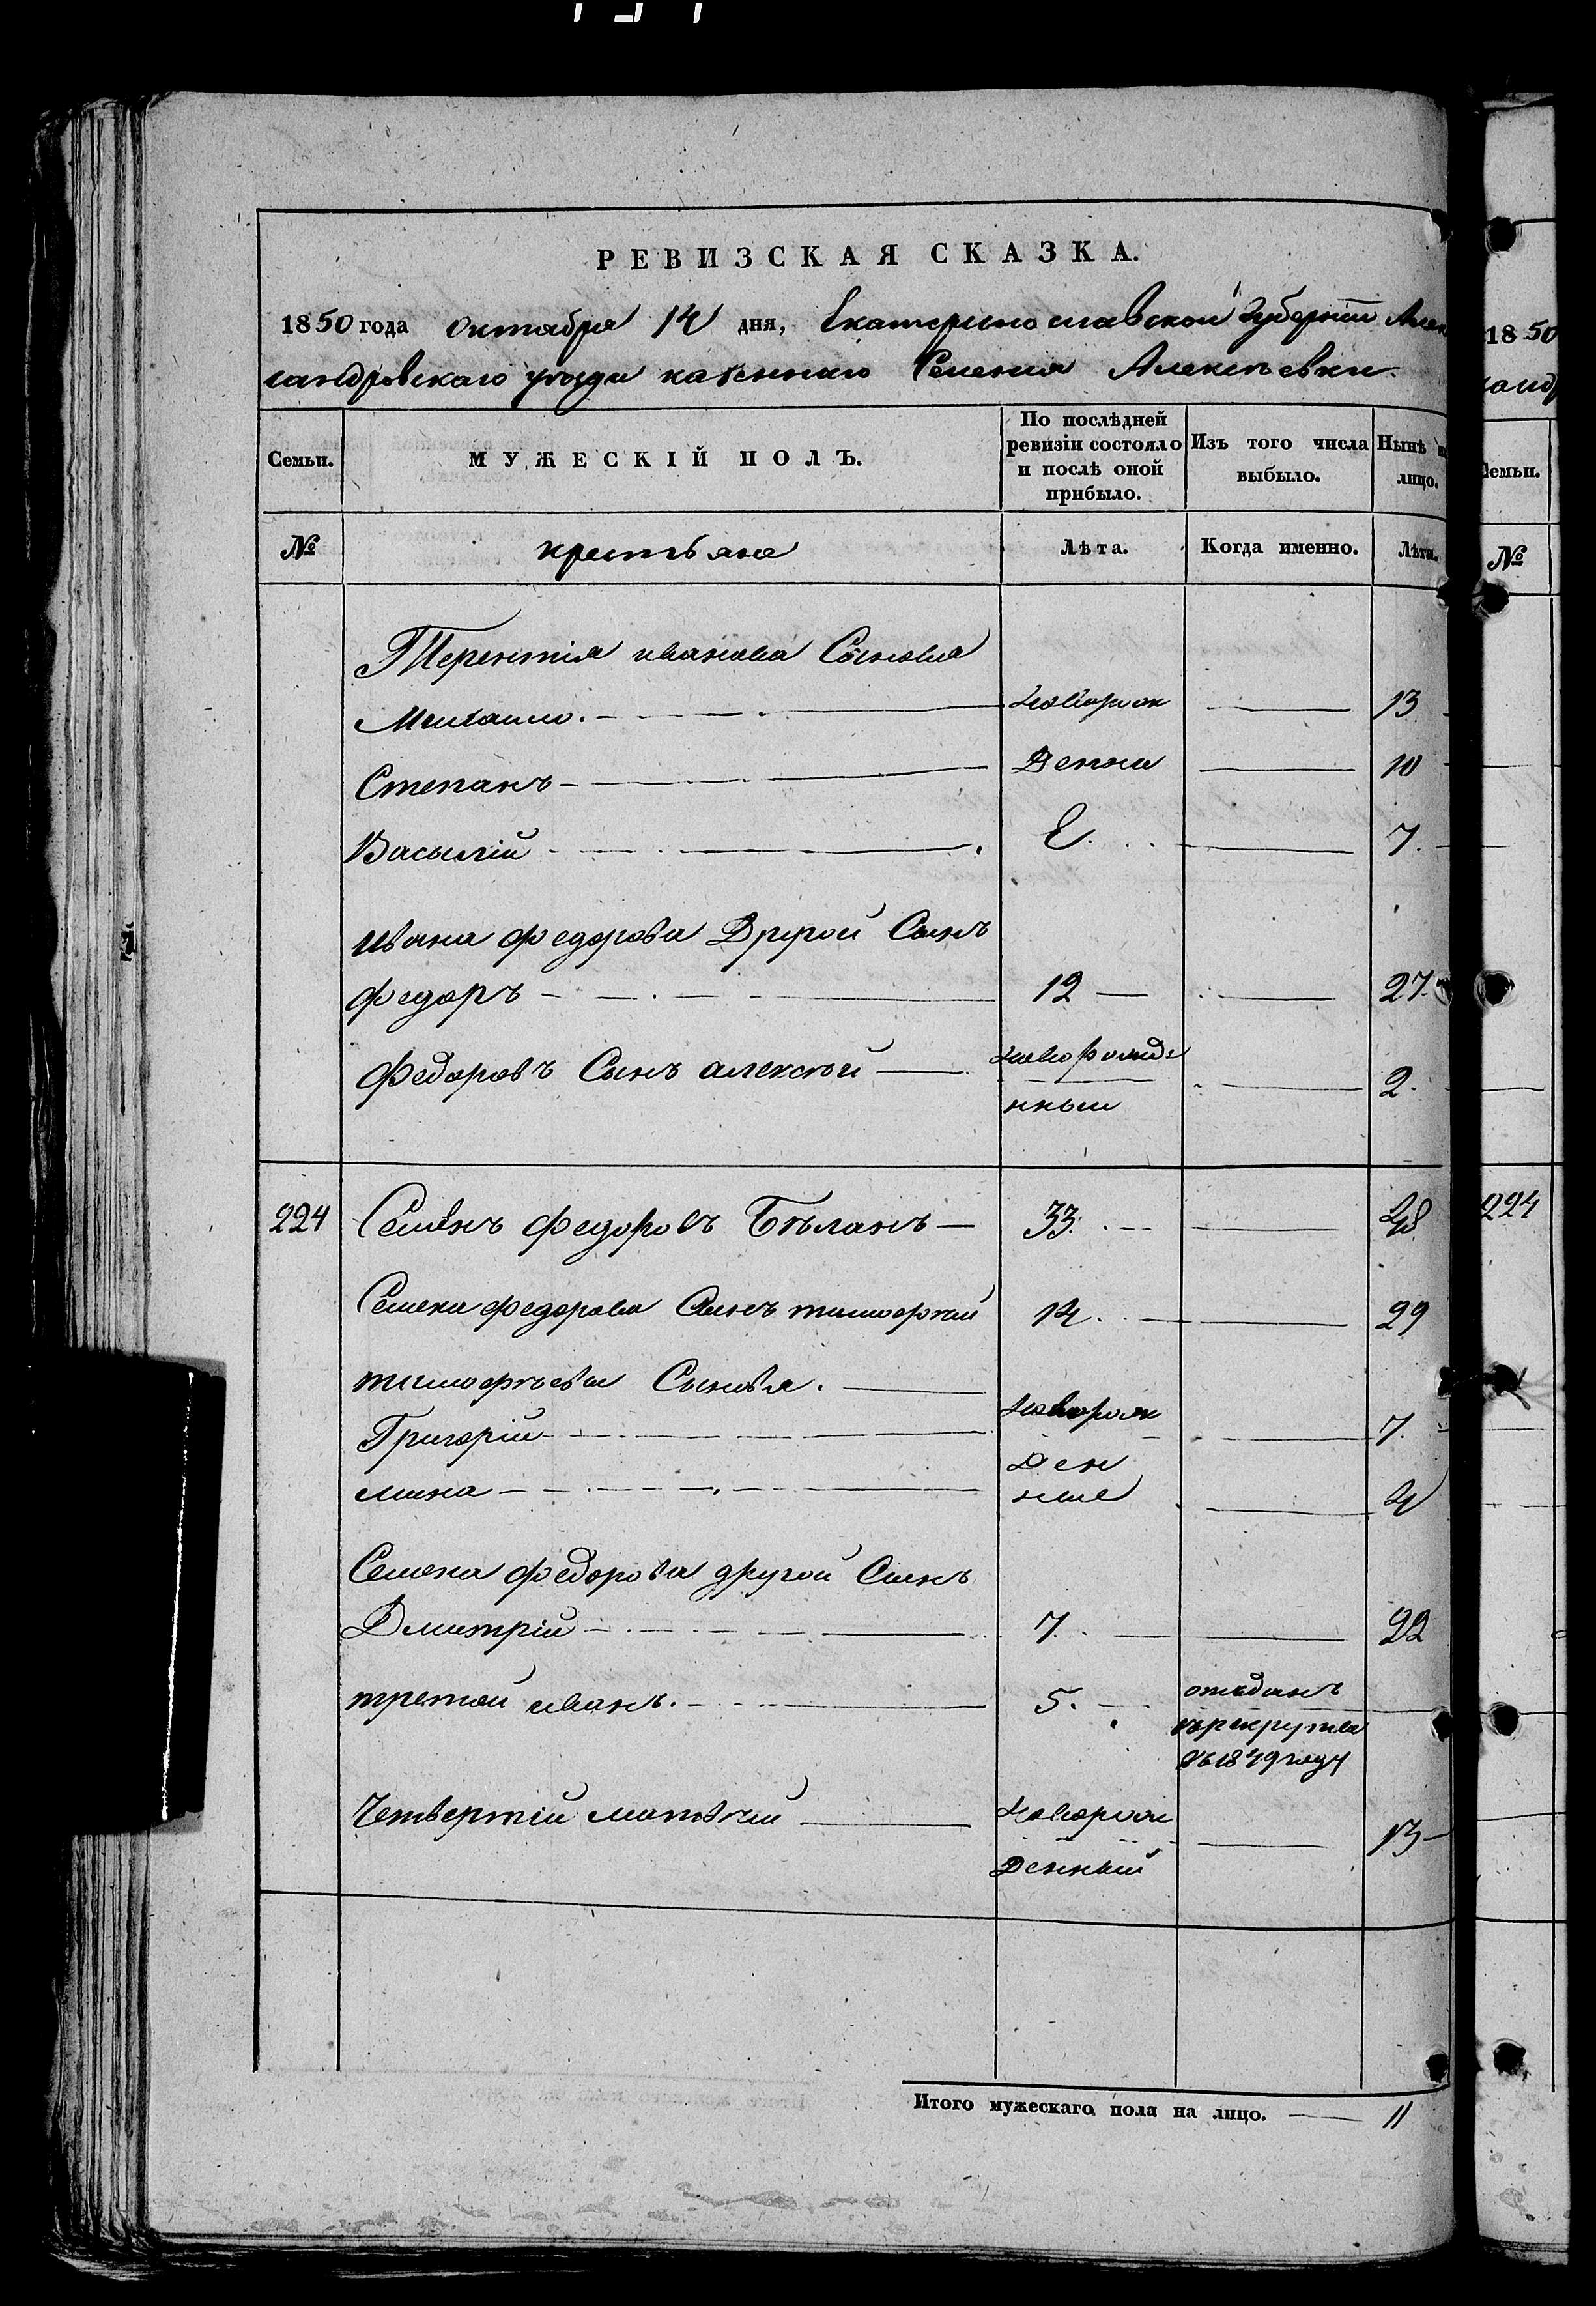 РЕВИЗСКАЯ СКАЗКА.
1850 года октября 14 дня, Екатеринославской Губернiи Алек
сандровскаго уезда казеннаго Селения Алексѣевки.
Семьи. МУЖЕСКІЙ ПОЛЪ. По послѣдней ревизіи состояло и послѣ оной прибыло. Изъ того числа выбыло. Нынѣ лицо.
№ крестьяне Лѣта. Когда именно. Лѣта.
Терентiя иванова Сыновья
Михаило. новорож 13
Степанъ денны 10
Василiй Е 7
ивана федорова Другой Сынъ
федоръ 12 27
Федоровъ Сынъ алексѣй новорожде 2
нный
224 Семёнъ федоровъ Бѣланъ 33 48
Семена федорова Сынъ тимофѣй 14 29
тимофѣева Сыновья.
Григорiй новорож 7
ден
мина ные 4
Семена федорова другой Сынъ
Дмитрiй 7 22
третой иванъ. 5. отъданъ
въ рекруты
въ 1849 году
Четвертiй матвѣй новорож 13
денный
Итого мужескаго пола на лицо. 11
1850
санд
Семьи.
№
224